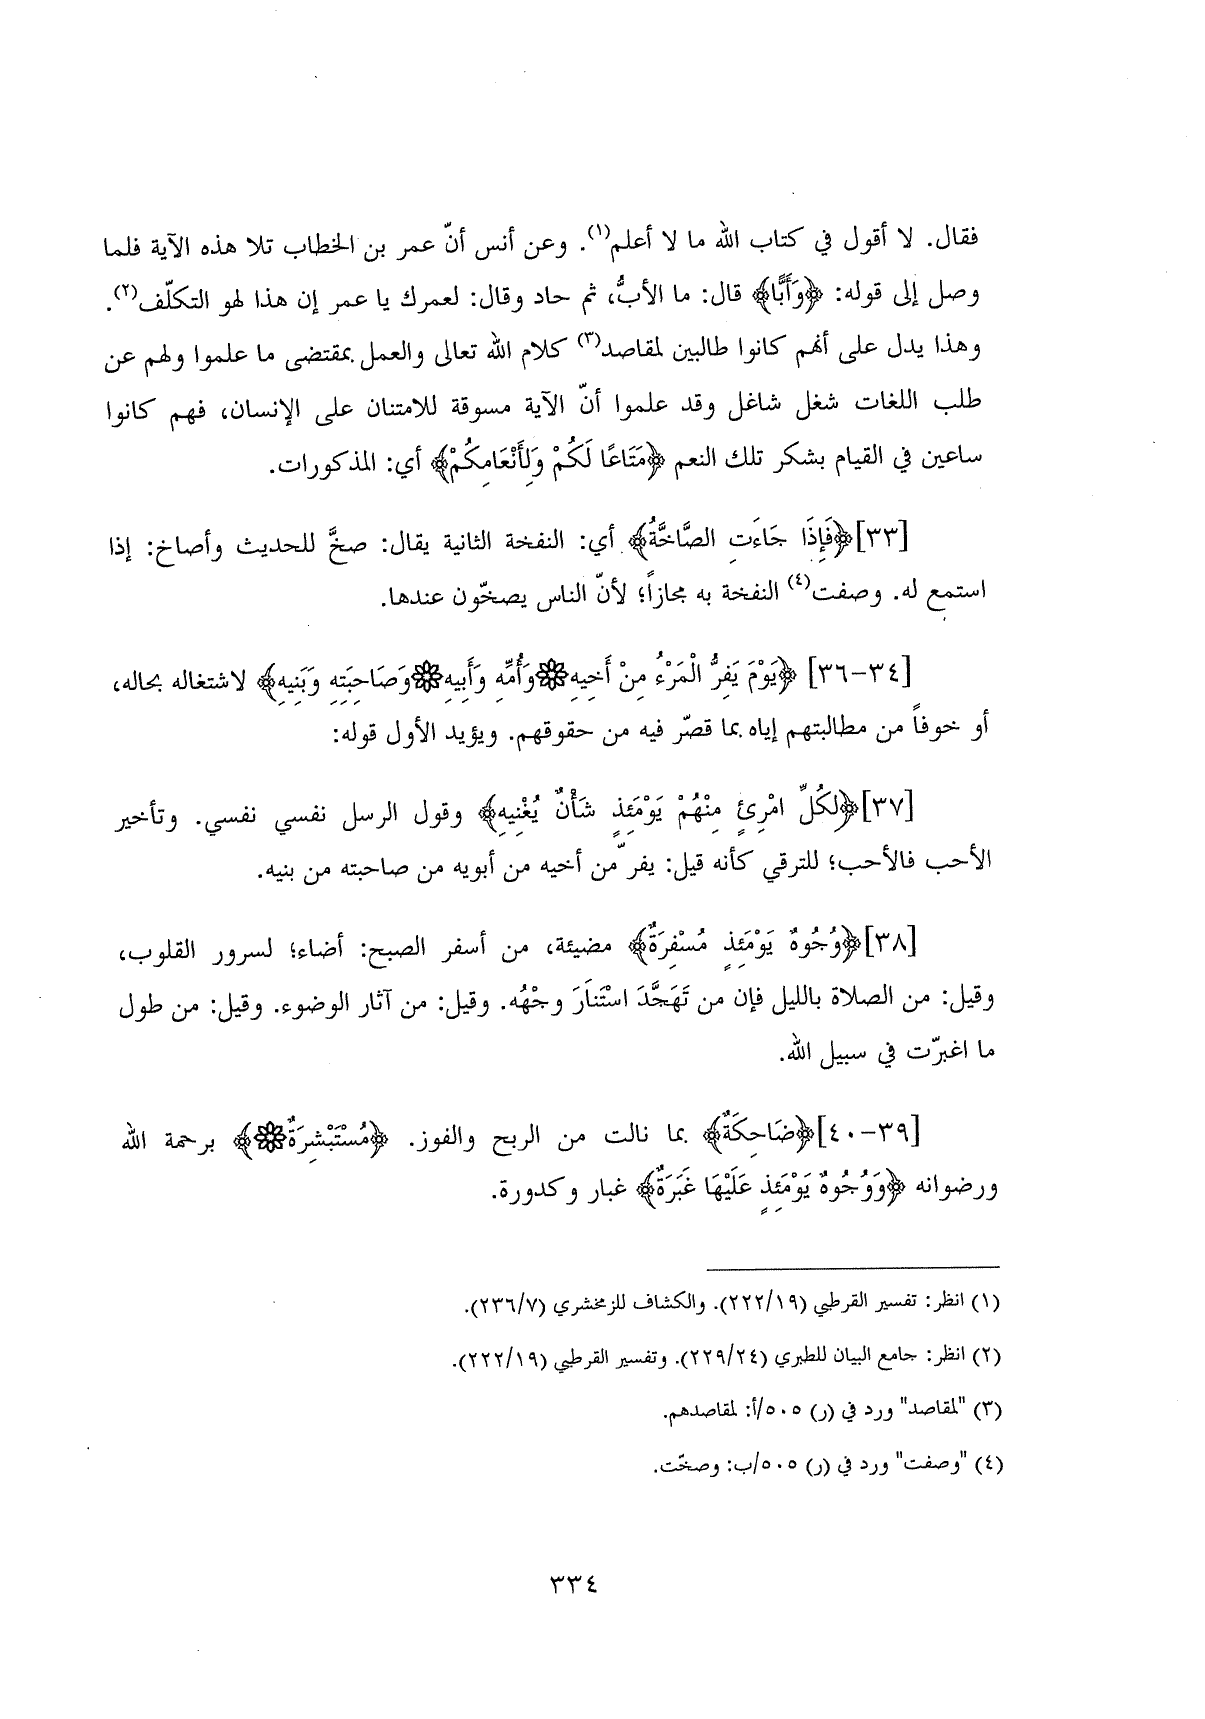 فقال. لا أقول في كتاب الله ما لا أعلم(١). وعن أنس أنّ عمر بن الخطاب تلا هذه الآية فلما
وصل إلى قوله: ﴿وَأَبًّا﴾ قال: ما الأبُّ، ثم حاد وقال: لعمرك يا عمر إن هذا لهو التكلّف(٢).
وهذا يدل على أنهم كانوا طالبين لمقاصد(٣) كلام الله تعالى والعمل بمقتضى ما علموا ولهم عن
طلب اللغات شغل شاغل وقد علموا أنّ الآية مسوقة للامتنان على الإنسان، فهم كانوا
ساعين في القيام بشكر تلك النعم ﴿مَتَاعًا لَكُمْ وَلِأَنْعَامِكُمْ﴾ أي: المذكورات.
[٣٣]﴿فَإِذَا جَاءَتِ الصَّاخَّةُ﴾ أي: النفخة الثانية يقال: صخَّ للحديث وأصاخ: إذا
استمع له. وصفت(٤) النفخة به مجازاً؛ لأنّ الناس يصخّون عندها.
[٣٤-٣٦] ﴿يَوْمَ يَفِرُّ الْمَرْءُ مِنْ أَخِيهِ۞وَأُمِّهِ وَأَبِيهِ۞وَصَاحِبَتِهِ وَبَنِيهِ﴾ لاشتغاله بحاله،
أو خوفاً من مطالبتهم إياه بما قصّر فيه من حقوقهم. ويؤيد الأول قوله:
[٣٧]﴿لِكُلِّ امْرِئٍ مِنْهُمْ يَوْمَئِذٍ شَأْنٌ يُغْنِيهِ﴾ وقول الرسل نفسي نفسي. وتأخير
الأحب فالأحب؛ للترقي كأنه قيل: يفر ّمن أخيه من أبويه من صاحبته من بنيه.
[٣٨]﴿وُجُوهٌ يَوْمَئِذٍ مُسْفِرَةٌ﴾ مضيئة، من أسفر الصبح: أضاء؛ لسرور القلوب،
وقيل: من الصلاة بالليل فإن من تَهَجَّدَ اسْتَنَارَ وجْهُه. وقيل: من آثار الوضوء. وقيل: من طول
ما اغبرّت في سبيل الله.
[٣٩-٤٠]﴿ضَاحِكَةٌ﴾ بما نالت من الربح والفوز. ﴿مُسْتَبْشِرَةٌ۞﴾ برحمة الله
ورضوانه ﴿وَوُجُوهٌ يَوْمَئِذٍ عَلَيْهَا غَبَرَةٌ﴾ غبار وكدورة.
(١) انظر: تفسير القرطبي (٢٢٢/١٩). والكشاف للزمخشري (٢٣٦/٧).
(٢) انظر: جامع البيان للطبري (٢٢٩/٢٤). وتفسير القرطبي (٢٢٢/١٩).
(٣) "لمقاصد" ورد في (ر) ٥٠٥/أ: لمقاصدهم.
(٤) "وصفت" ورد في (ر) ٥٠٥/ب: وصخّت.
٣٣٤